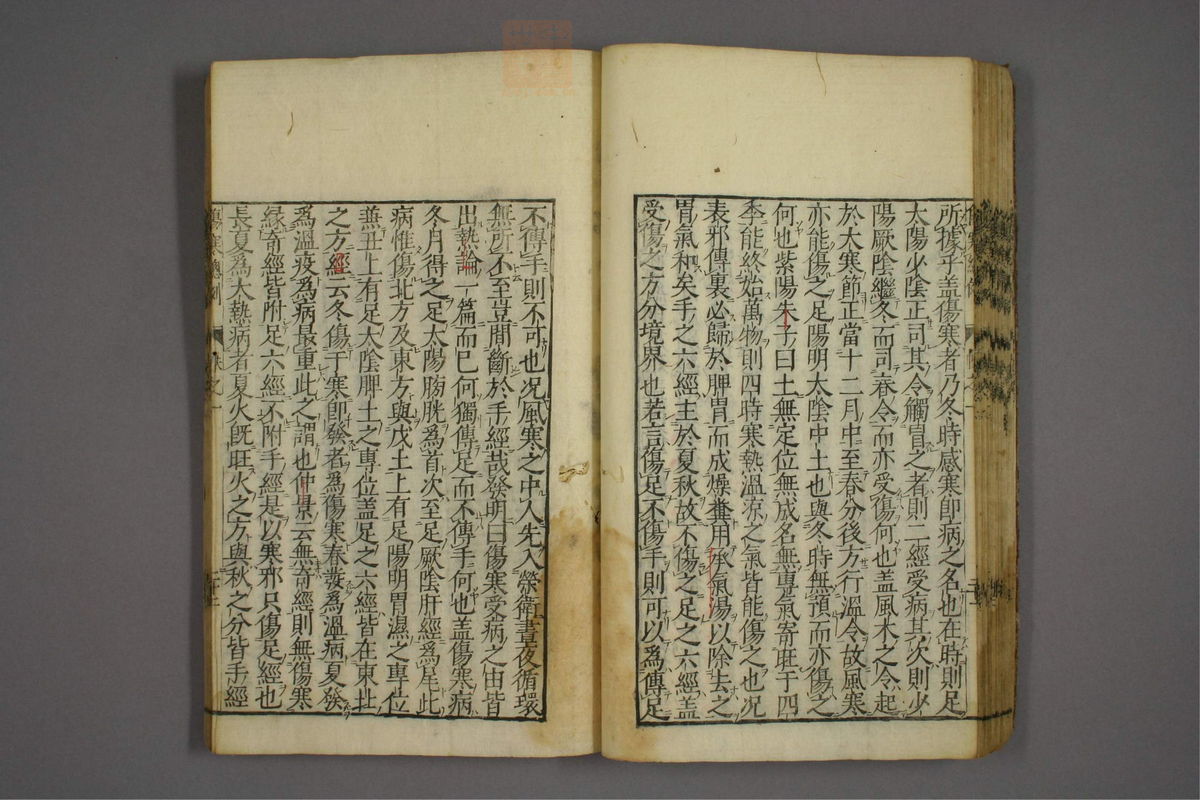 所據乎盖傷寒者乃冬時感寒即病之名也在時則足
太陽少陰正司其令觸冒之者則二經受病其次則少
陽厥陰繼冬而司春令而亦受傷何也盖風木之令起
於大寒節正當十二月中至春分後方行溫令故風寒
亦能傷之足陽明太陰中土也與冬時無預而亦傷之
何也紫陽朱子曰土無定位無成名無專氣寄旺于四
季能終始萬物則四時寒熱溫凉之氣皆能傷之也况
表邪傳裏必歸於脾胃而成燥糞用承氣湯以除去之
胃氣和矣手之六經主於夏秋故不傷之足之六經盖
受傷之方分境界也若言傷足不傷手則可以為傳足
不傳手則不可也况風寒之中人先入榮衛晝夜循環
無所不至豈間斷於手經哉發明曰傷寒受病之由皆
出熱論一篇而已何獨傳足而不傳手何也盖傷寒病
冬月得之足太陽膀胱為首次至足厥陰肝經為尾此
病惟傷北方及東方與戊土上有足陽明胃濕之專位
兼丑上有足太陰脾土之專位盖足之六經皆在東北
之方經云冬傷于寒即發者為傷寒春發為溫病夏發
為溫疫為病最重此之謂也仲景云無奇經則無傷寒
緣奇經皆附足六經不附手經是以寒邪只傷足經也
長夏為大熱病者夏火旣旺火之方與秋之分皆手經